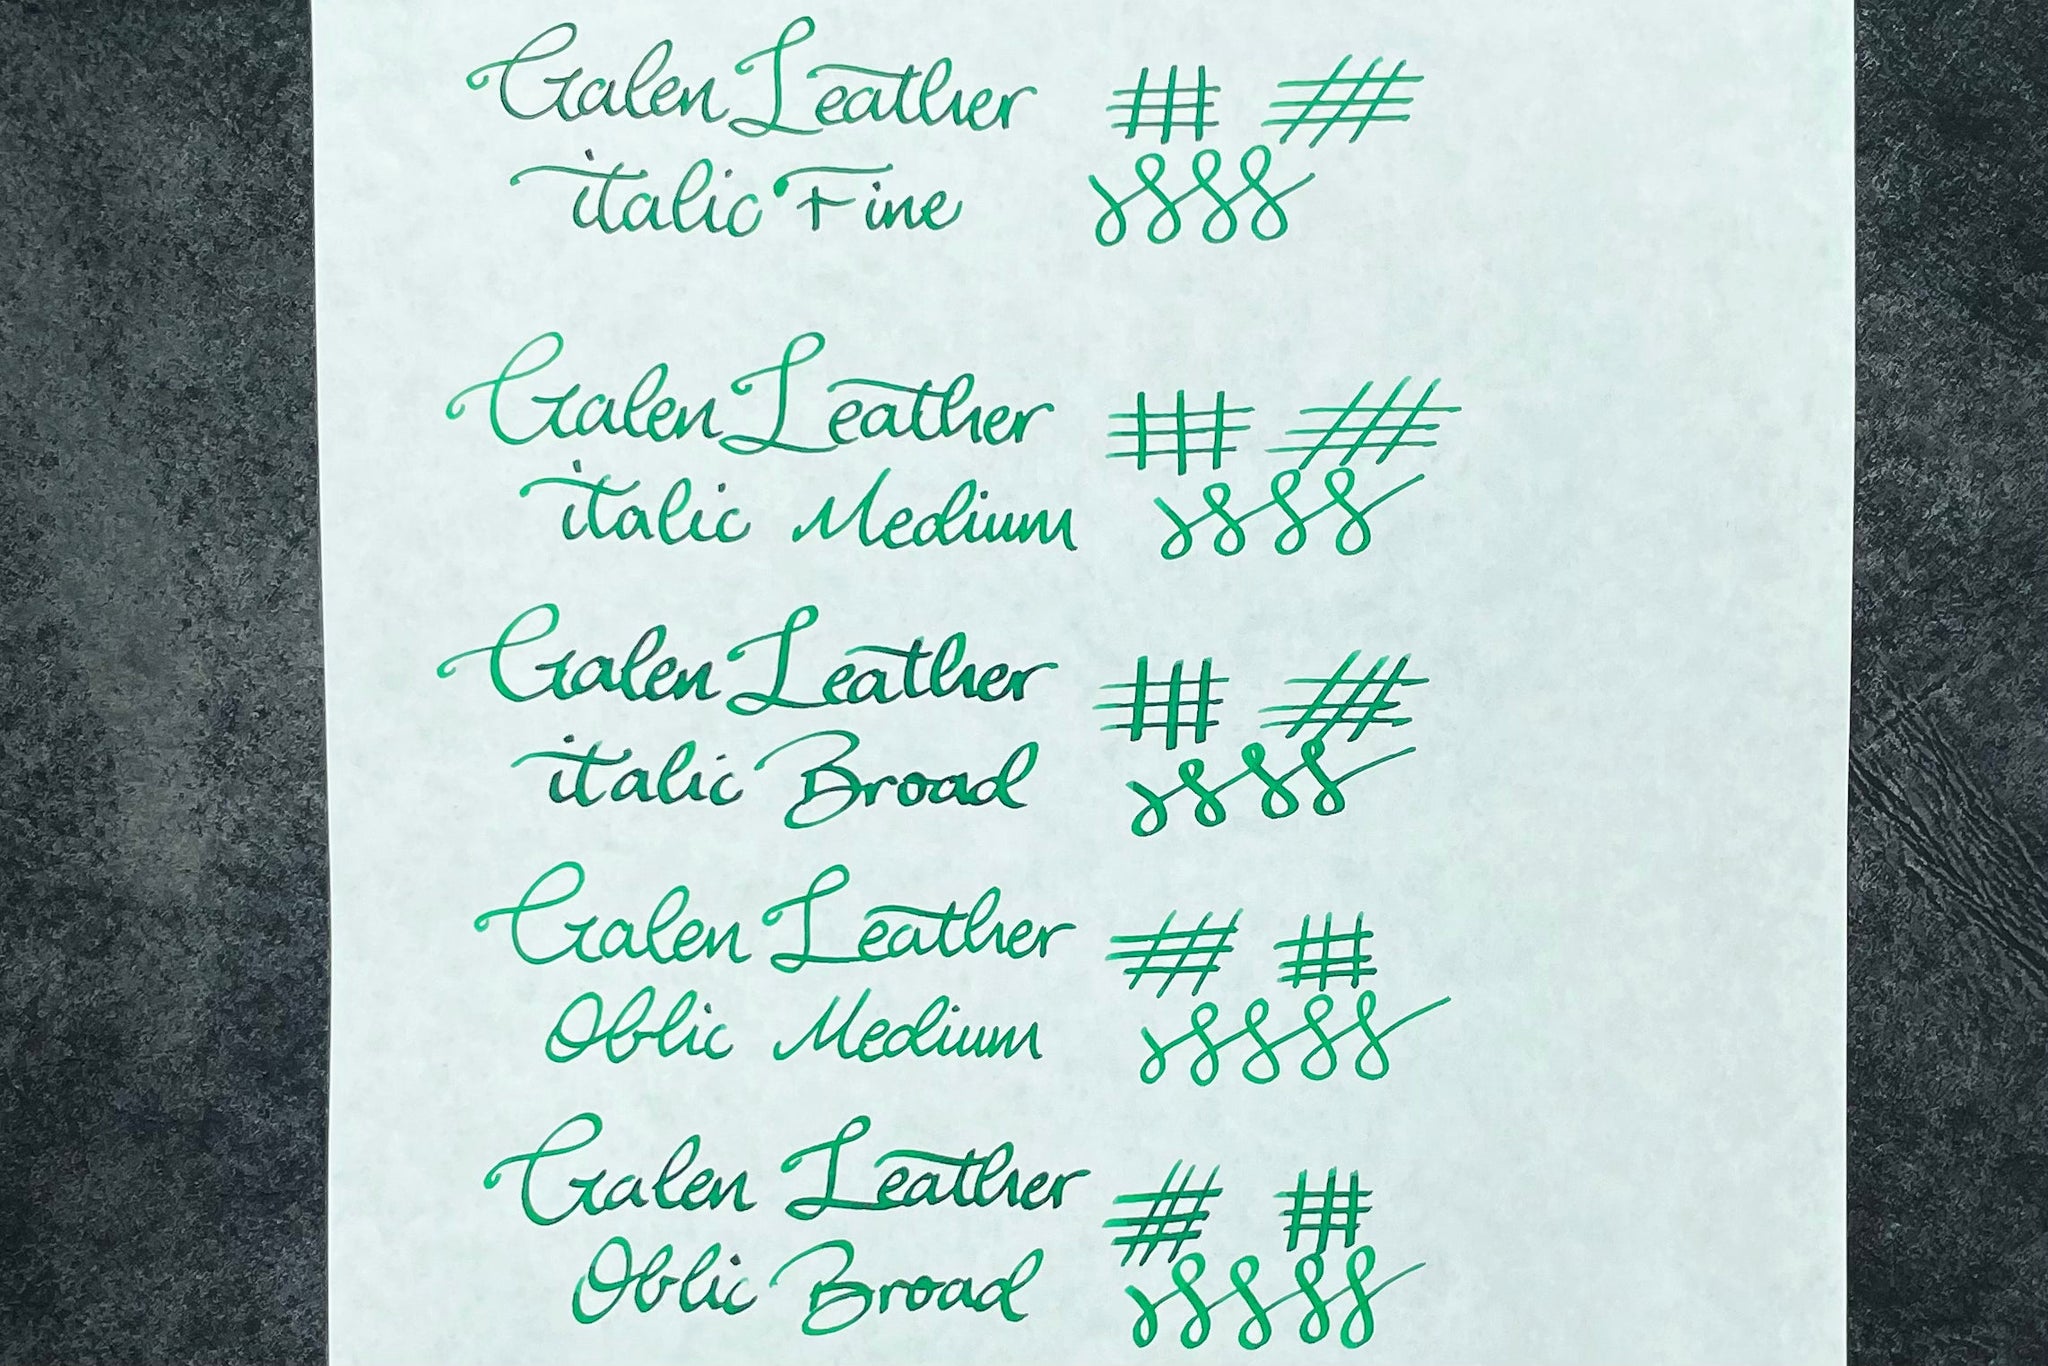 Galen Leather
italic Fine
Galen Leather
italic Medium
Galen Leather
italic Broad
Galen Leather
Oblic Medium
Galen Leather
Oblic Broad